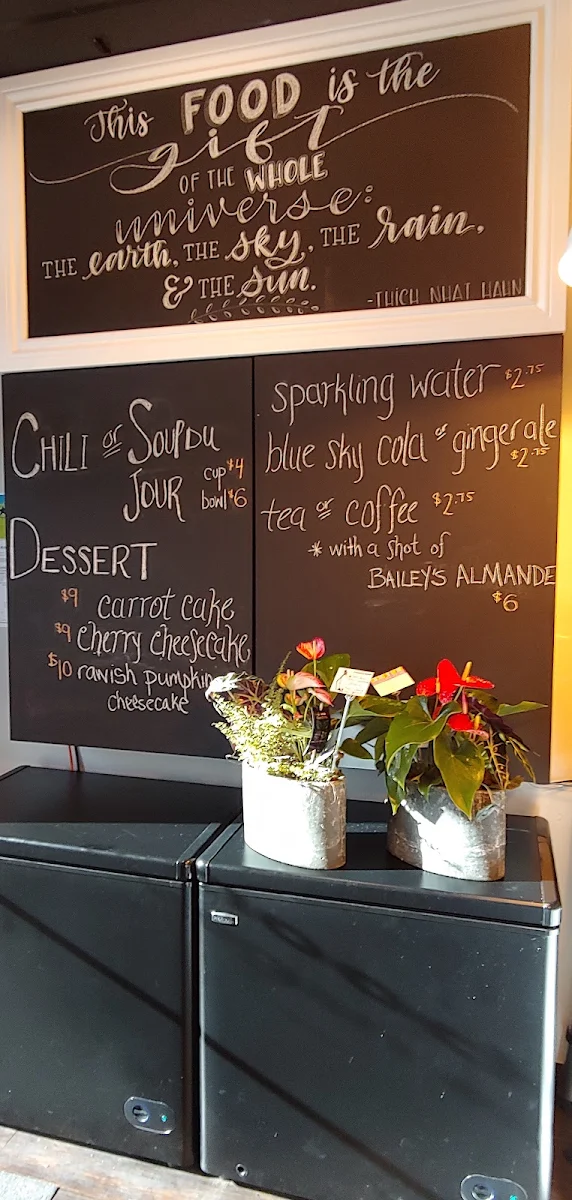 This FOOD is the
gift
OF THE WHOLE
universe:
THE earth, THE sky, THE rain,
& THE sun.
-THICH NHAT HAHN
CHILI or SOUP DU
JOUR
cup $4
bowl $6
DESSERT
$9 carrot cake
$9 cherry cheesecake
$10 rawish pumpkin
cheesecake
sparkling water $2.75
blue sky cola or ginger ale
$2.75
tea or coffee $2.75
* with a shot of
BAILEY'S ALMANDE
$6